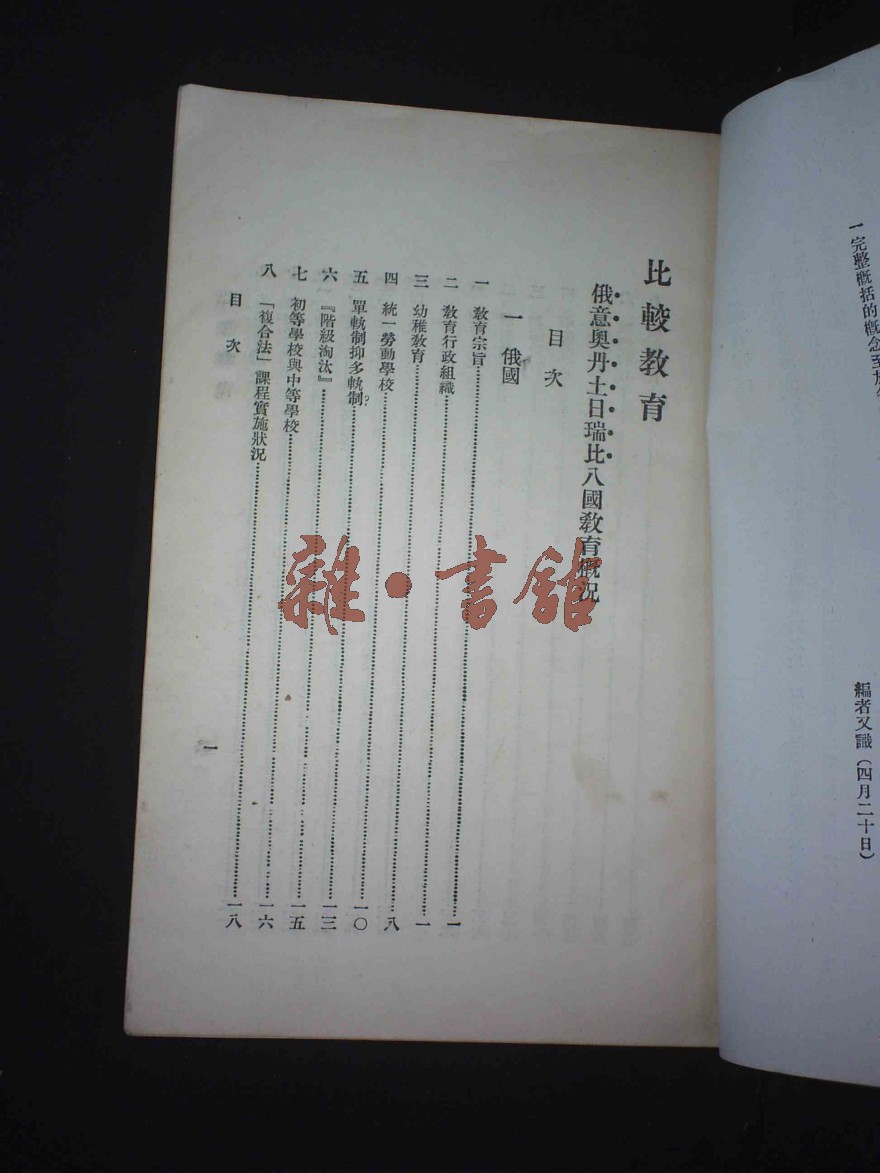 一完整概括的概念至於
編者又識(四月二十日)
比較教育
俄意奧丹土日瑞比八國教育概況
目次
一 俄國
一 教育宗旨……一
二 教育行政組織……一
三 幼稚教育……八
四 統一勞動學校……一〇
五 單軌制抑多軌制?……一三
六 『階級淘汰』……一五
七 初等學校與中等學校……一六
八 「複合法」課程實施狀況……一八
目次
一
雜·書館